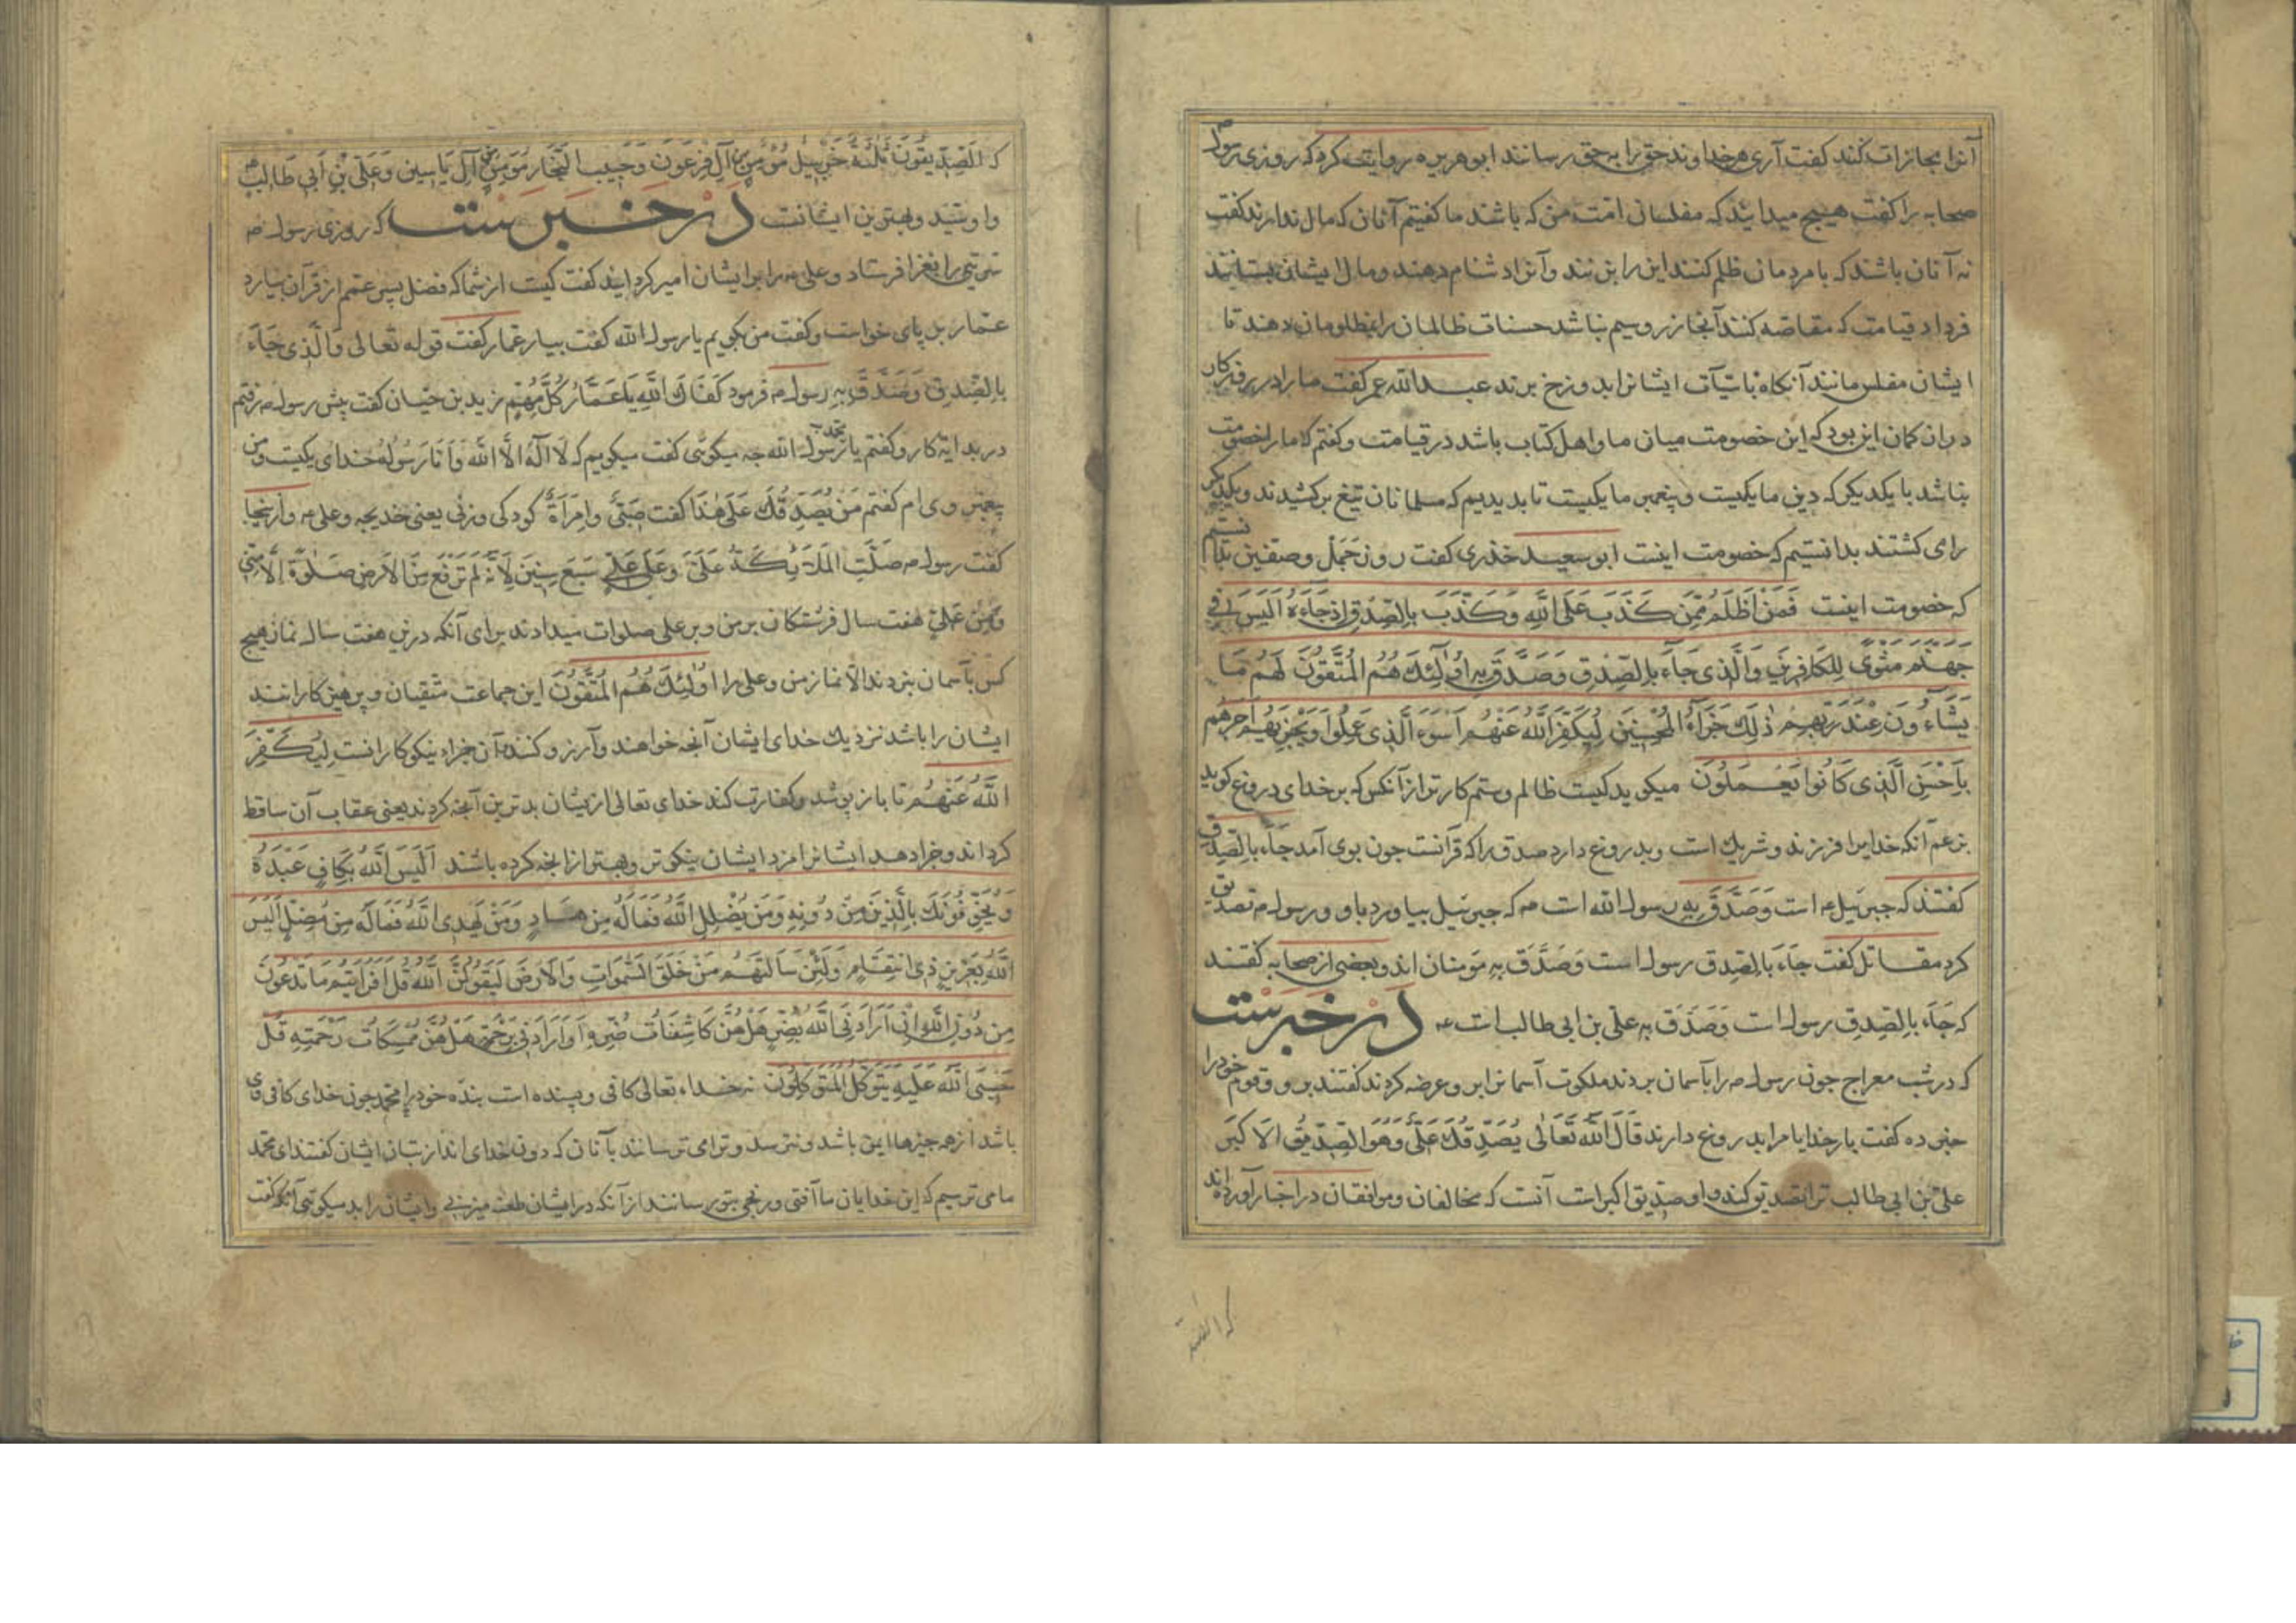 آنرا مجازات کنند کفت آری هر خداوند حق را بر حق رسانند ابو هریره روایت کرد که روزی رسول م
صحابه را کفت هیچ میدانید که مفلسان امت من که باشند ما کفتیم آنان که مال ندارند کفت
نه آنان باشند که با مردمان ظلم کنند این را بزنند و آنرا دشنام دهند و مال ایشان بستانند
فردا قیامت که مقاصه کنند آنجا زر و سیم نباشد حسنات ظالمان را بمظلومان دهند تا
ایشان مفلس مانند آنکاه با سیّآت ایشانرا بدوزخ برند عبد الله عمر کفت ما را در
دران کمان این بود که این خصومت میان ما و اهل کتاب باشد در قیامت و کفتم که ما را خصومت
نباشد با یکدیکر که دین ما یکیست و پیغمبر ما یکیست تا بدیدیم که مسلمانان تیغ برکشیدند و یکدیکر
را می کشتند بدانستیم که خصومت اینست ابو سعید خدری کفت روز جمل و صفین بدانستم
که خصومت اینست فَمَنْ اَظْلَمُ مِمَّنْ كَذَبَ عَلَى اللّٰهِ وَكَذَّبَ بِالصِّدْقِ اِذْ جَاءَهُ اَلَيْسَ فِي
جَهَنَّمَ مَثْوًى لِلْكَافِرِينَ وَالَّذِى جَاءَ بِالصِّدْقِ وَصَدَّقَ بِهِ اُولٰئِكَ هُمُ الْمُتَّقُونَ لَهُمْ مَا
يَشَاءُونَ عِنْدَ رَبِّهِمْ ذٰلِكَ جَزَاءُ الْمُحْسِنِينَ لِيُكَفِّرَ اللّٰهُ عَنْهُمْ اَسْوَءَ الَّذِى عَمِلُوا وَيَجْزِيَهُمْ اَجْرَهُمْ
بِاَحْسَنِ الَّذِى كَانُوا يَعْمَلُونَ میکوید کیست ظالم و ستم کارتر از آنکس که بر خدای دروغ کوید
بزعم آنکه خدایرا فرزند و شریک است و بدروغ دارد صدق را که قرآنست چون بوی آمد جَاءَ بِالصِّدْقِ
کفتند که جبرئیل ع است وَصَدَّقَ بِهِ رسول الله است م که جبرئیل بیاورد باو و رسول م تصدیق
کرد مقاتل کفت جَاءَ بِالصِّدْقِ رسول است وَصَدَّقَ بِهِ مومنان اند و بعضی از صحابه کفتند
که جَاءَ بِالصِّدْقِ رسول است وَصَدَّقَ بِهِ علی بن ابی طالب است ع در خبرست
که در شب معراج چون رسول م را بآسمان بردند ملکوت آسمانرا برو عرضه کردند کفتند برو و قوم خود را
خبر ده کفت بار خدایا مرا بدروغ دارند قَالَ اللّٰهُ تَعَالٰى يُصَدِّقُكَ عَلِيٌّ وَهُوَ الصِّدِّيقُ الْاَكْبَرُ
علی بن ابی طالب ترا تصدیق کند و او صدّیق اکبر است آنست که مخالفان و موافقان در اخبار آورده اند
که الصد
که اَلصِّدِّيقُونَ ثَلٰثَةٌ حزبیل مُؤْمِنُ آلِ فِرْعَوْنَ وَحَبِيبُ النَّجَّارُ مُؤْمِنُ آلِ يَاسِينَ وَعَلِيُّ بْنُ اَبِي طَالِبٍ
و او سید و بهترین ایشانست در خبرست که روزی رسول م
سریّتی را بغزا فرستاد و علی ع را بر ایشان امیر کردانید کفت کیست از شما که فضل پسر عمّم از قرآن بیارد
عمّار بر پای خواست و کفت من بکویم یا رسول الله کفت بیار عمّار کفت قوله تعالی وَالَّذِى جَاءَ
بِالصِّدْقِ وَصَدَّقَ بِهِ رسول م فرمود كَفَاكَ اللّٰهُ يَا عَمَّارُ كُلَّ مُهِمٍّ زید بن کفت پیش رسول م رفتم
در بدایة کار و کفتم یا رسول الله چه میکوئی کفت میکویم که لَا اِلٰهَ اِلَّا اللّٰهُ وَاَنَا رَسُولُهُ خدای یکیست و من
پیغمبر وی ام کفتم مَنْ يُصَدِّقُكَ عَلٰى هٰذَا کفت صَبِيٌّ وَامْرَأَةٌ کودکی و زنی یعنی خدیجه و علی ع و ازینجا
کفت رسول م صَلَّتِ الْمَلَائِكَةُ عَلَيَّ وَعَلٰى عَلِيٍّ سَبْعَ سِنِينَ لِاَنَّهُ لَمْ تُرْفَعْ مِنَ الْاَرْضِ صَلٰوةٌ اِلَّا مِنِّي
وَمِنْ عَلِيٍّ هفت سال فرشتکان بر من و بر علی صلوات میدادند برای آنکه درین هفت سال نماز هیچ
کس بآسمان نبردند الّا نماز من و علی را اُولٰئِكَ هُمُ الْمُتَّقُونَ این جماعت متّقیان و پرهیز کارانند
ایشان را باشد نزدیك خدای ایشان آنچه خواهند و آرزو کنند آن جزاء نیکوکارانست لِيُكَفِّرَ
اللّٰهُ عَنْهُمْ تا باز پوشد و کفارت کند خدای تعالی ازیشان بدترین آنچه کردند یعنی عقاب آن ساقط
کرداند و جزا دهد ایشانرا مزد ایشان نیکوتر و بهتر از انچه کرده باشند اَلَيْسَ اللّٰهُ بِكَافٍ عَبْدَهُ
وَيُخَوِّفُونَكَ بِالَّذِينَ مِنْ دُونِهِ وَمَنْ يُضْلِلِ اللّٰهُ فَمَا لَهُ مِنْ هَادٍ وَمَنْ يَهْدِى اللّٰهُ فَمَا لَهُ مِنْ مُضِلٍّ اَلَيْسَ
اللّٰهُ بِعَزِيزٍ ذِى انْتِقَامٍ وَلَئِنْ سَاَلْتَهُمْ مَنْ خَلَقَ السَّمٰوَاتِ وَالْاَرْضَ لَيَقُولُنَّ اللّٰهُ قُلْ اَفَرَاَيْتُمْ مَا تَدْعُونَ
مِنْ دُونِ اللّٰهِ اِنْ اَرَادَنِيَ اللّٰهُ بِضُرٍّ هَلْ هُنَّ كَاشِفَاتُ ضُرِّهِ اَوْ اَرَادَنِي بِرَحْمَةٍ هَلْ هُنَّ مُمْسِكَاتُ رَحْمَتِهِ قُلْ
حَسْبِيَ اللّٰهُ عَلَيْهِ يَتَوَكَّلُ الْمُتَوَكِّلُونَ نه خداء تعالی کافی و بسنده است بندهٔ خود را محمد چون خدای کافی وی
باشد از همه چیزها ایمن باشد و نترسد و ترا می ترسانند بآنان که دون خدای اند از بتان ایشان کفتند ای محمد
ما می ترسیم که این خدایان ما آفتی و رنجی بتو رسانند از آنکه در ایشان طعن میزنی و ایشان را بد میکوئی آنکه کفت